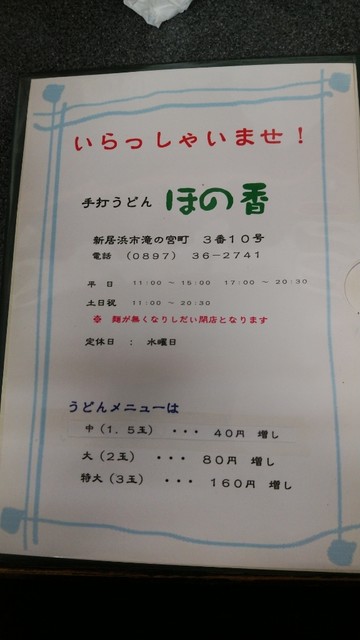 いらっしゃいませ！
手打うどん ほの香
新居浜市滝の宮町 ３番１０号
電話 （０８９７） ３６－２７４１
平 日 １１：００ ～ １５：００ １７：００ ～ ２０：３０
土日祝 １１：００ ～ ２０：３０
※ 麺が無くなりしだい閉店となります
定休日 ： 水曜日
うどんメニューは
中（１．５玉） ・・・ ４０円 増し
大（２玉） ・・・ ８０円 増し
特大（３玉） ・・・ １６０円 増し